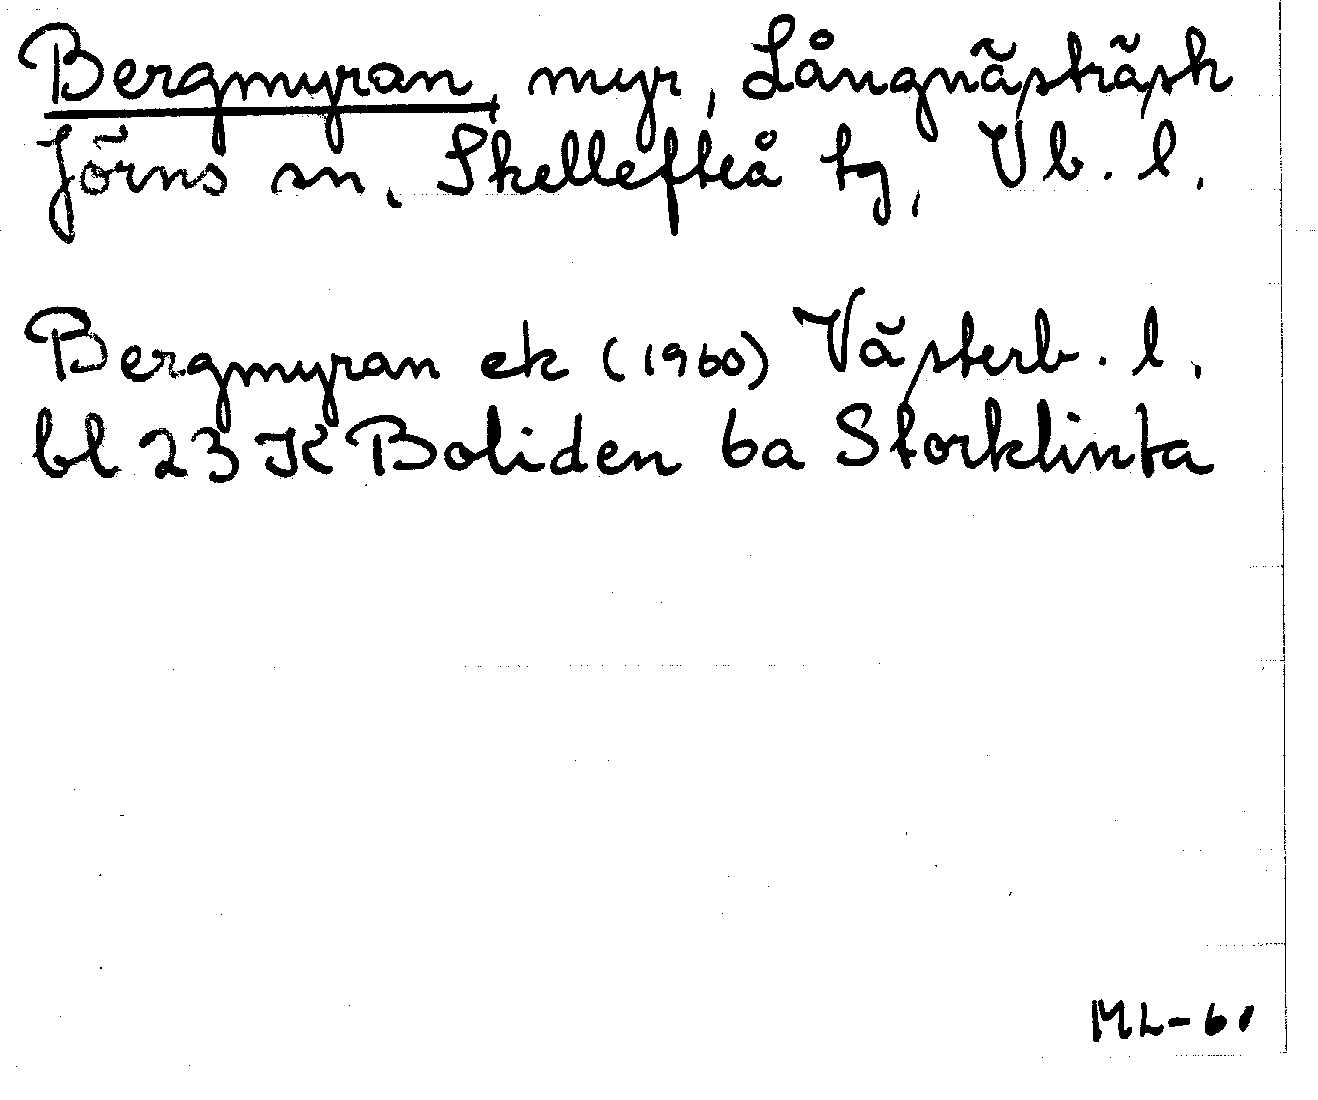 Bergmyran, myr, Långnästräsk
Jörns sn, Skellefteå tg, Vb. l.
Bergmyran ek (1960) Västerb. l.
bl 23 K Boliden 6a Storklinta
ML-61